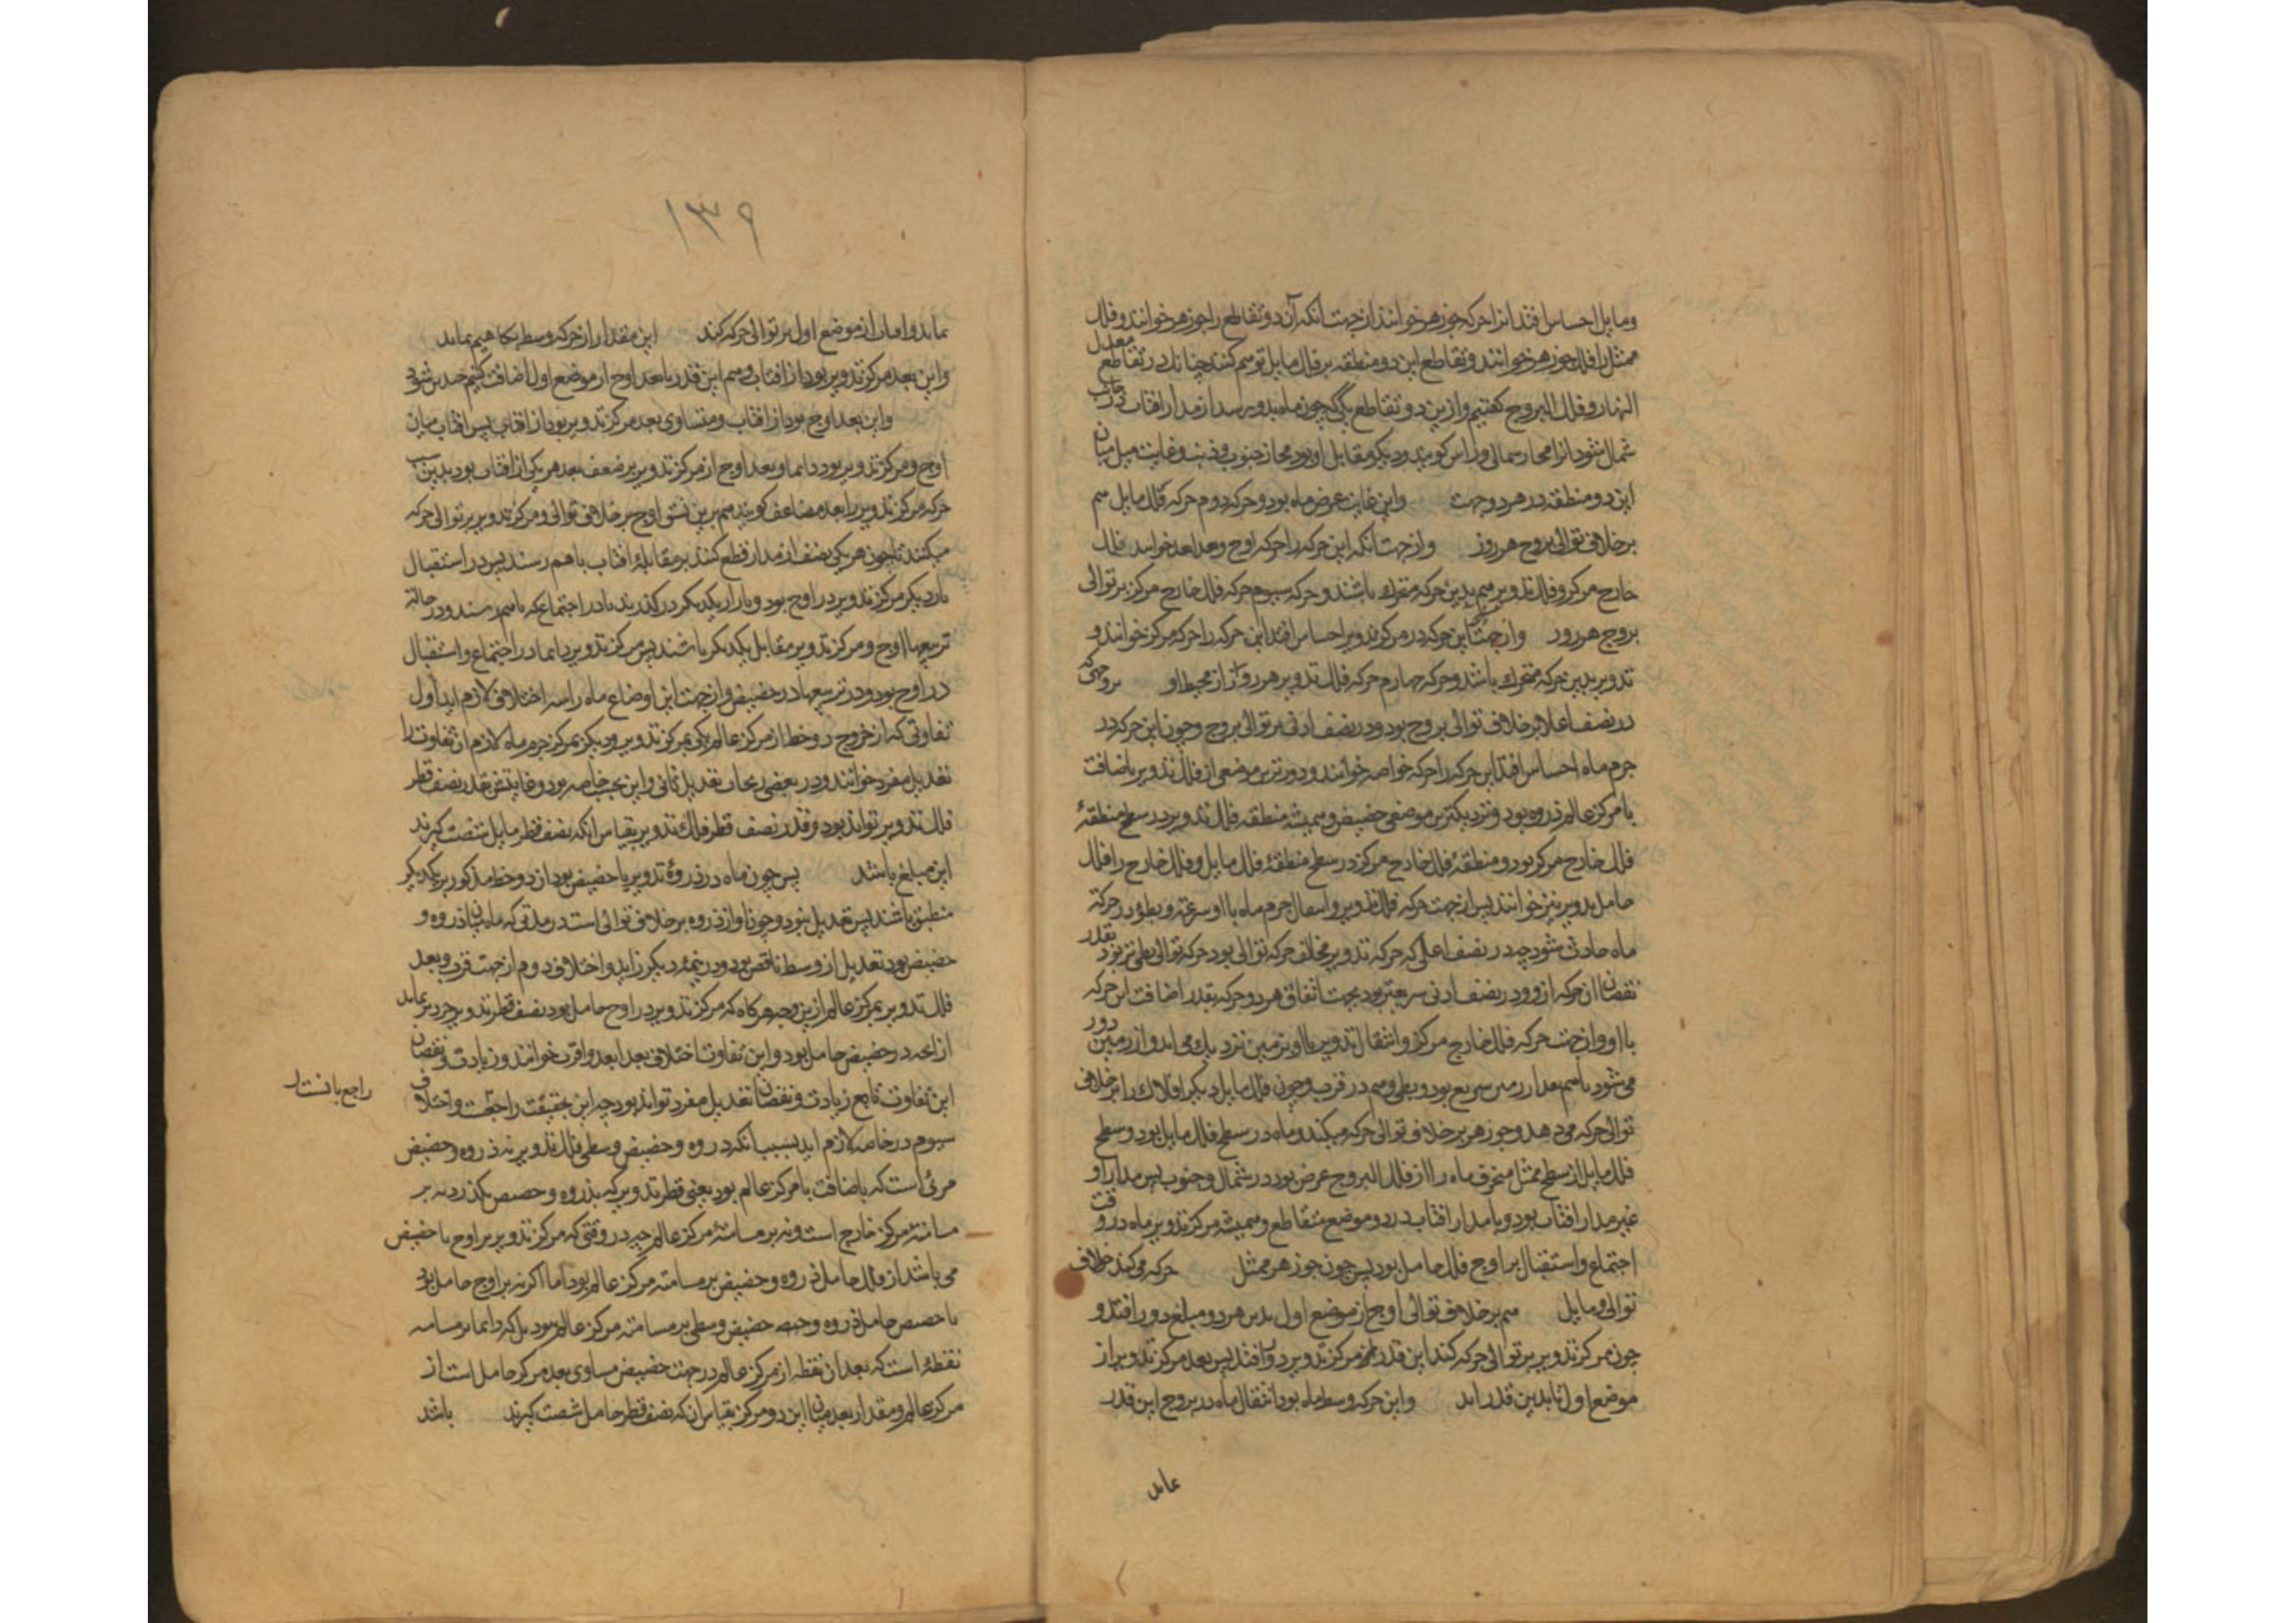 ومایل احساس افتد انرا حرکه جوزهر خوانند از جهت انکه آن دو تقاطع را جوزهر خوانند و فلک
ممثل را فلک جوزهر خوانند و تقاطع این دو منطقه بر فلک مایل توهم کنند چنانک در تقاطع معدل
النهار و فلک البروج کفتیم و ازین دو تقاطع یکی که چون ماه بدو رسد از مدار افتاب در جانب
شمال شود انرا مجاز شمالی و راس کویند و دیکر مقابل او بود مجاز جنوب و ذنب و غایت میل میان
این دو منطقه در هر دو جهت واین غایت عرض ماه بود و حرکه دوم حرکه فلک مایل هم
برخلاف توالی بروج هر روز و از جهت انکه این حرکه را حرکه اوج خوانند فلک
خارج مرکز و فلک تدویر هم بدین حرکه متحرک باشند و حرکه سیوم حرکه فلک خارج مرکز بر توالی
بروج هر روز و از جهت انک این حرکه در مرکز تدویر احساس افتد این حرکه را حرکه مرکز خوانند و
تدویر بدین حرکه متحرک باشد و حرکه چهارم حرکه فلک تدویر هر روز از محیط او بروجهی که
در نصف اعلا بر خلاف توالی بروج بود و در نصف ادنی بر توالی بروج و چون این حرکه در
جرم ماه احساس افتد این حرکه را حرکه خاصه خوانند و دورترین موضعی از فلک تدویر باضافت
با مرکز عالم ذروه بود و نزدیکترین موضعی حضیض و همیشه منطقه فلک تدویر در سطح منطقهٔ
فلک خارج مرکز بود و منطقهٔ فلک خارج مرکز در سطح منطقهٔ فلک مایل و فلک خارج را فلک
حامل تدویر نیز خوانند پس از جهت حرکه فلک تدویر و انتقال جرم ماه با او سرعة و بطؤ در حرکة
ماه حادث شود چه در نصف اعلی که حرکه تدویر مخالف حرکه توالی بود حرکه توالی بطی تر بود بقدر
نقصان ان حرکه ازو و در نصف ادنی سریعتر بود بجهت اتفاق هر دو حرکه بقدر اضافت این حرکه
با او و از جهت حرکه فلک خارج مرکز و انتقال تدویر با او بزمین نزدیک می اید و از زمین دور
می شود سریع بود و بطی و هم در قرب و چون فلک مایل دیکر افلاک را بر خلاف
توالی حرکه می دهد و جوزهر بر خلاف توالی حرکه میکند و ماه در سطح فلک مایل بود و سطح
فلک مایل از سطح ممثل منحرف ماه را از فلک البروج عرض بود در شمال و جنوب پس مدار او
غیر مدار افتاب بود و با مدار افتاب در دو موضع متقاطع و همیشه مرکز تدویر ماه در وقت
اجتماع و استقبال بر اوج فلک حامل بود پس چون جوزهر ممثل حرکه می کند خلاف
توالی و مایل هم بر خلاف توالی اوج از موضع اول بدین هر دو مبلغ دور افتد و
چون مرکز تدویر بر توالی حرکه کند این قدر مرکز تدویر دور افتد پس بعد مرکز تدویر از
موضع اول تا بدین قدر اید و این حرکه وسط ماه بود انتقال ماه در بروج این قدر
نماید
۱۳۹
نماید و اما از موضع اول بر توالی حرکه کند این مقدار از حرکه وسط بکاهیم بماند
و این بعد مرکز تدویر بود از افتاب و هم این قدر با بعد اوج از موضع اول اضافت کنیم حد بر شود
و این بعد اوج بود از افتاب و متساوی بعد مرکز تدویر بود از افتاب پس افتاب میان
اوج و مرکز تدویر بود دایما و بعد اوج از مرکز تدویر بر ضعف بعد هر یکی از افتاب بود بدین سبب
حرکه مرکز تدویر را بعد مضاعف کویند هم برین نسق اوج بر خلاف توالی و مرکز تدویر بر توالی حرکه
میکنند تا چون هر یکی نصف از مدار قطع کنند بر مقابلهٔ افتاب با هم رسند پس در استقبال
بار دیکر مرکز تدویر در اوج بود و باز از یکدیکر در کذرند تا در اجتماع که باهم رسند و در حالة
تربیعها اوج و مرکز تدویر مقابل یکدیکر باشند پس مرکز تدویر دایما در اجتماع و استقبال
در اوج بود و در تربیعها در حضیض و از جهت این اوضاع ماه را سه اختلاف لازم اید اول
تفاوتی که از خروج دو خط از مرکز عالم یکی بمرکز تدویر و دیکر بمرکز جرم ماه لازم اید ان تفاوت را
تعدیل مفرد خوانند و در بعضی زیجات تعدیل ثانی و این بحسب خاصه بود و غایتش بقدر نصف قطر
فلک تدویر تواند بود و قدر نصف قطر فلک تدویر بقیاس انکه نصف قطر مایل شصت کیرند
این مبلغ باشد پس چون ماه در ذروهٔ تدویر یا حضیض بود ان دو خط مذکور بر یکدیکر
منطبق باشند پس تعدیل نبود و چون او از ذروه بر خلاف توالی است در مدتی که ماه میان ذروه و
حضیض بود تعدیل از وسط ناقص بود و در نیمهٔ دیکر زاید و اختلاف دوم از جهت قرب و بعد
فلک تدویر بمرکز عالم ازین وجه هرکاه که مرکز تدویر در اوج حامل بود نصف قطر تدویر خردتر نماید
از انچه در حضیض حامل بود و این تفاوت اختلاف بعد ابعد و اقرب خوانند و زیادت و نقصان
این تفاوت تابع زیادت و نقصان تعدیل مفرد تواند بود چه این بحقیقت راجعت و اختلاف
راجع بانست
سیوم در خاصه لازم اید بسبب انکه ذروه و حضیض وسطی فلک تدویر نه ذروه و حضیض
مرئی است که باضافت با مرکز عالم بود یعنی قطر تدویر که بذروه و حضیض بکذرد نه بر
مسامتهٔ مرکز خارج است و نه بر مسامتهٔ مرکز عالم چه در وقتی که مرکز تدویر بر اوج یا حضیض
می باشد از فلک حامل ذروه و حضیض بر مسامته مرکز عالم بود اما اکر نه بر اوج حامل بود
یا حضیض حامل ذروه و حضیض وسطی بر مسامته مرکز عالم نبود بلکه دایما بر مسامته
نقطهٔ است که بعد ان نقطه از مرکز عالم در جهت حضیض مساوی بعد مرکز حامل است از
مرکز عالم و مقدار بعد میان این دو مرکز بقیاس ان که نصف قطر حامل شصت کیرند باشد